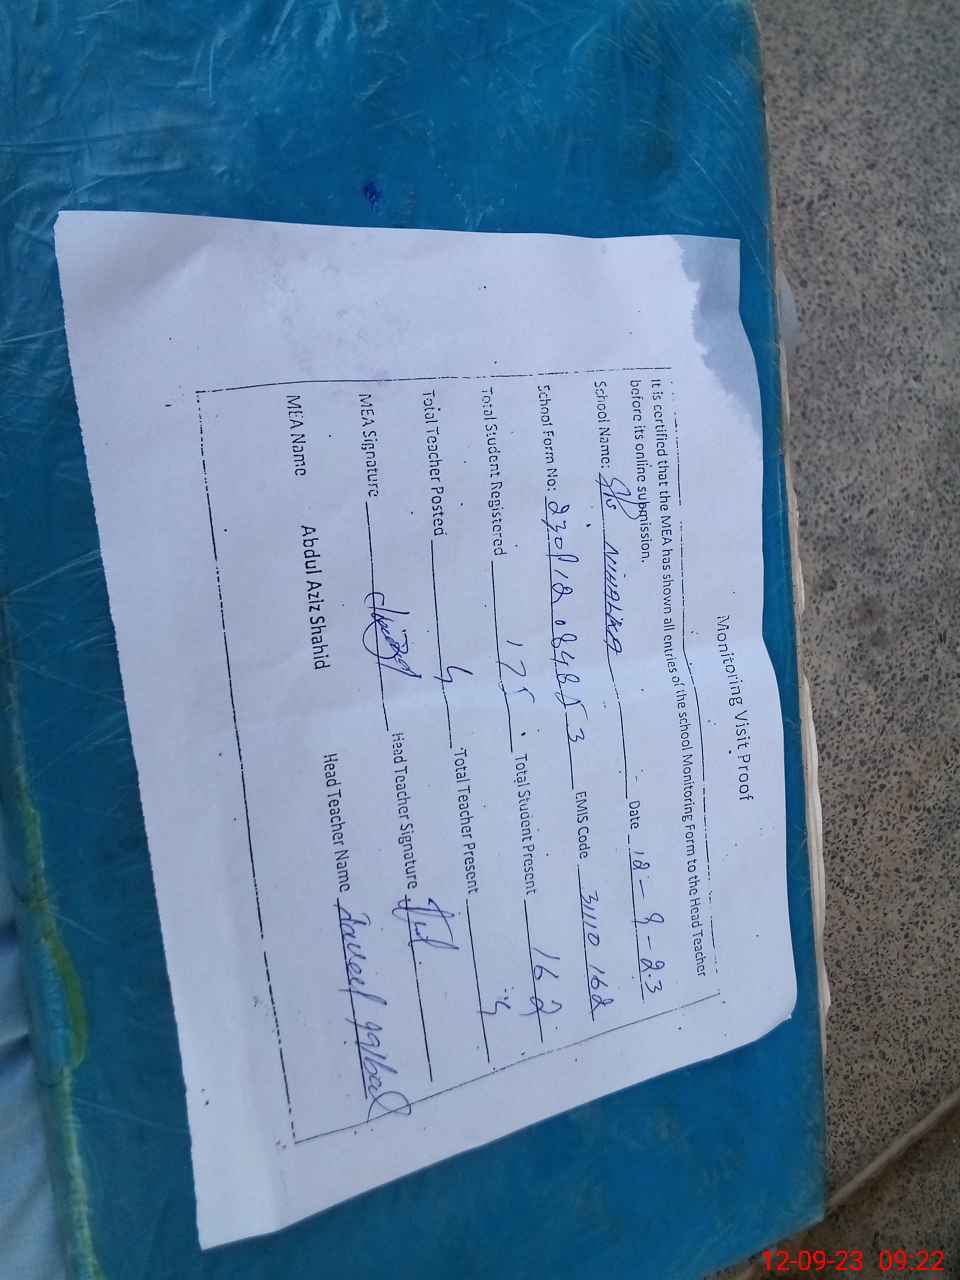 Monitoring Visit Proof
It is certified that the MEA has shown all entries of the school Monitoring Form to the Head Teacher
before its online submission.
School Name: Date 12-9-23
School Form No: 23091208485 3 EMIS Code 31110162
Total Student Registered 175 Total Student Present 162
Total Teacher Posted 4 Total Teacher Present 4
MEA Signature Head Teacher Signature
MEA Name Abdul Aziz Shahid Head Teacher Name
12-09-23 09:22